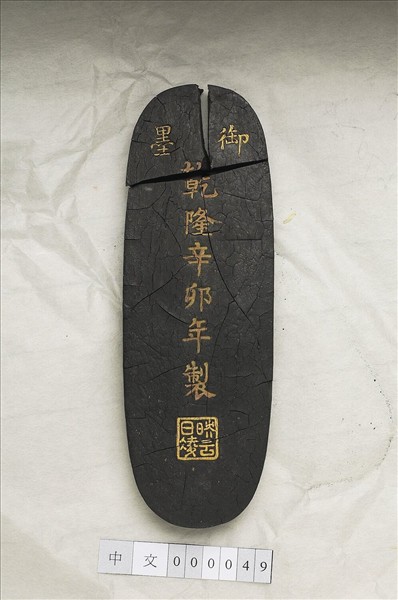 御墨
乾隆辛卯年製
中文000049